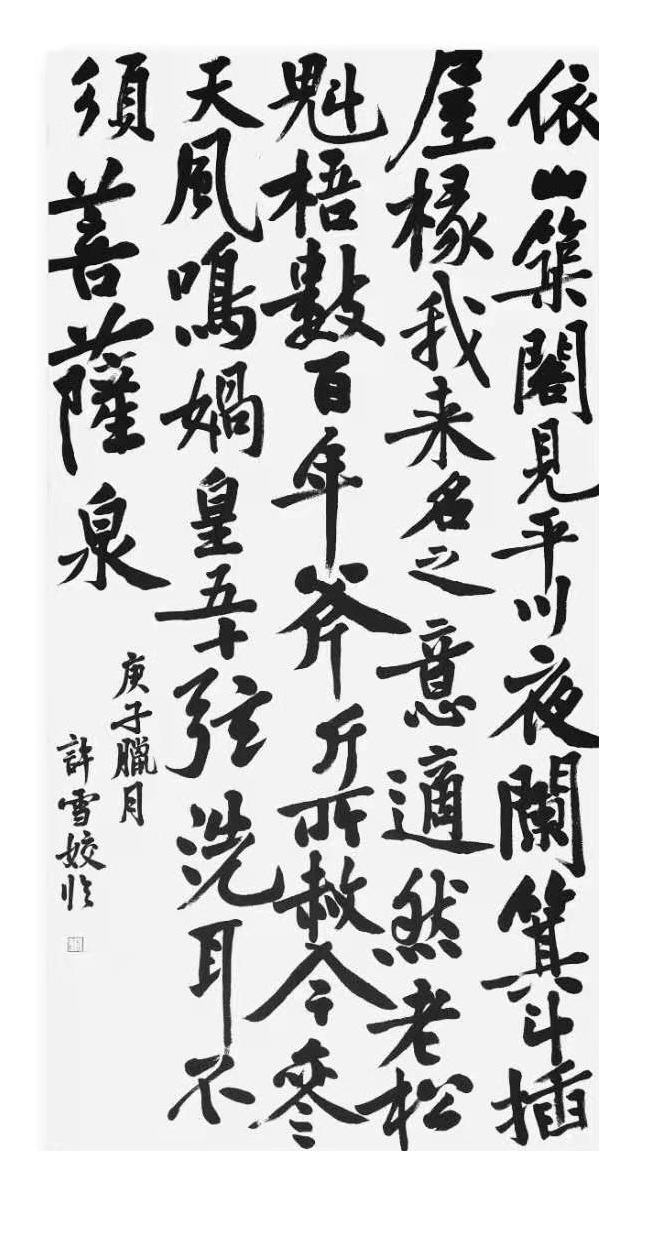 依山築閣見平川夜闌箕斗插
屋椽我来名之意適然老松
魁梧數百年斧斤所赦今參
天風鳴媧皇五十弦洗耳不
須菩薩泉
庚子臘月
許雪姣臨